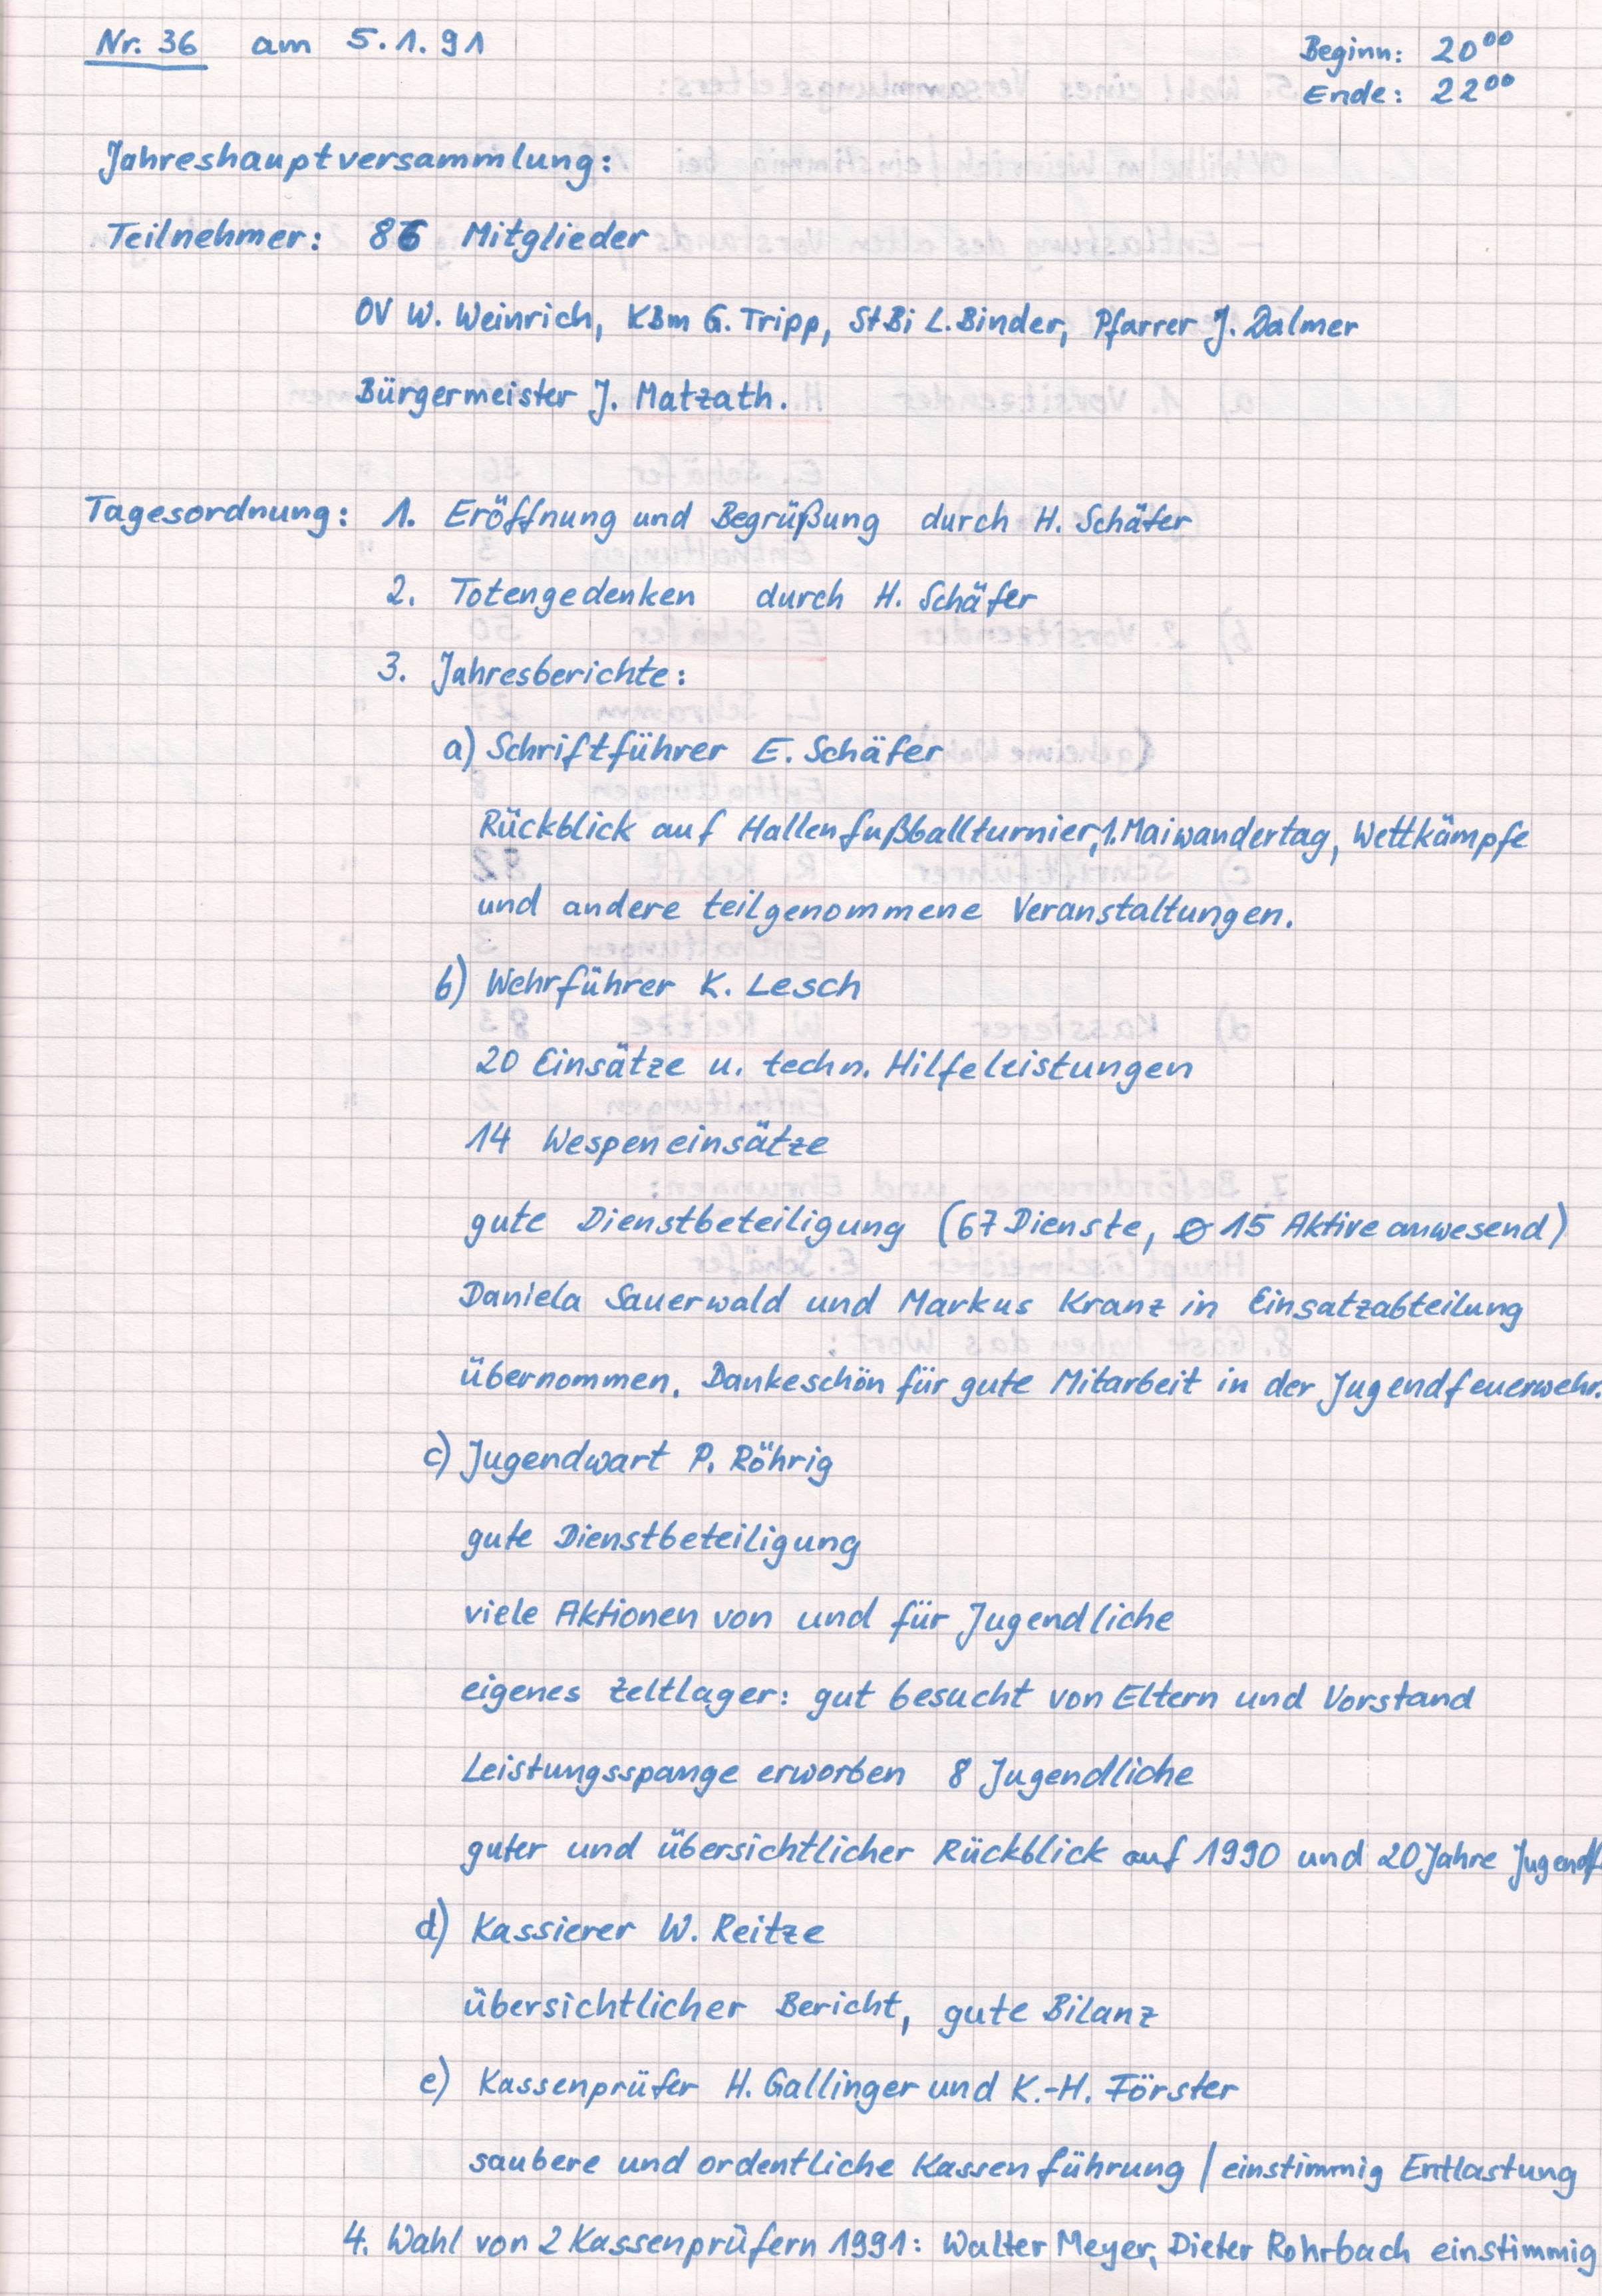 Nr. 36 am 5.1.91
Beginn: 20⁰⁰
Ende: 22⁰⁰
Jahreshauptversammlung:
Teilnehmer: 86 Mitglieder
OV W. Weinrich, KBm G. Tripp, StBi L. Binder, Pfarrer J. Dalmer
Bürgermeister J. Matzath.
Tagesordnung: 1. Eröffnung und Begrüßung durch H. Schäfer
2. Totengedenken durch H. Schäfer
3. Jahresberichte:
a) Schriftführer E. Schäfer
Rückblick auf Hallenfußballturnier, 1. Maiwandertag, Wettkämpfe
und andere teilgenommene Veranstaltungen.
b) Wehrführer K. Lesch
20 Einsätze u. techn. Hilfeleistungen
14 Wespeneinsätze
gute Dienstbeteiligung (67 Dienste, ø 15 Aktive anwesend)
Daniela Sauerwald und Markus Kranz in Einsatzabteilung
übernommen. Dankeschön für gute Mitarbeit in der Jugendfeuerwehr.
c) Jugendwart P. Röhrig
gute Dienstbeteiligung
viele Aktionen von und für Jugendliche
eigenes Zeltlager: gut besucht von Eltern und Vorstand
Leistungsspange erworben 8 Jugendliche
guter und übersichtlicher Rückblick auf 1990 und 20 Jahre Jugendf
d) Kassierer W. Reitze
übersichtlicher Bericht, gute Bilanz
e) Kassenprüfer H. Gallinger und K.-H. Förster
saubere und ordentliche Kassenführung / einstimmig Entlastung
4. Wahl von 2 Kassenprüfern 1991: Walter Meyer, Dieter Rohrbach einstimmig